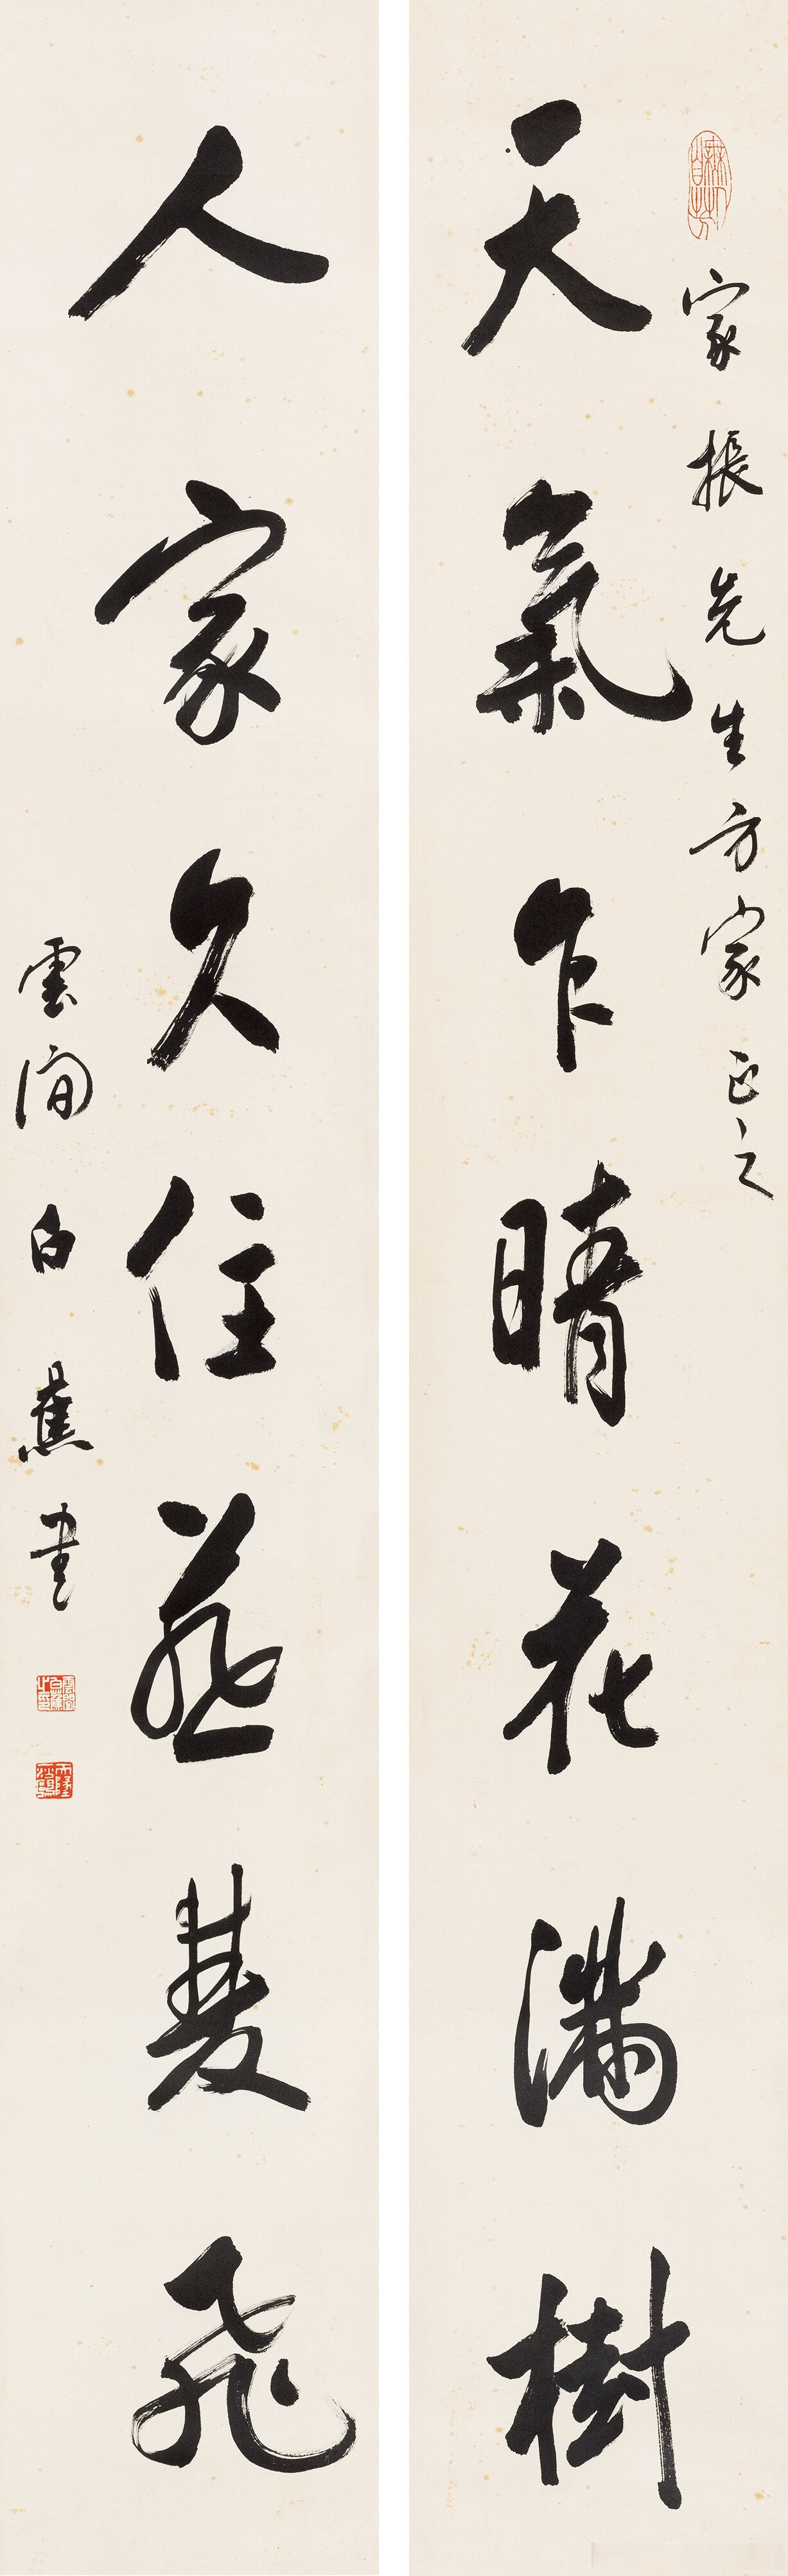 家振先生方家正之
天氣乍晴花滿樹
人家久住燕雙飛
雲間白蕉書